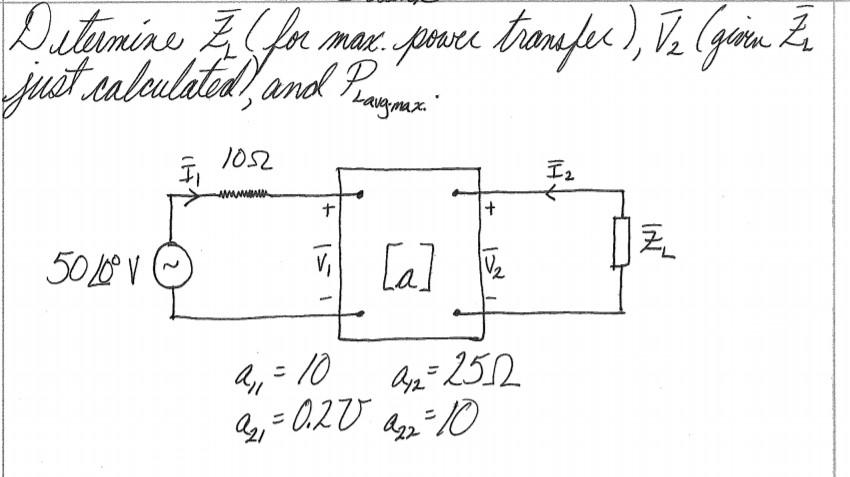 Determine Z̄L (for max. power transfer), V̄2 (given Z̄L
just calculated), and PLavg.max.
Ī1 10Ω Ī2
+ +
50∠0° V ~ V̄1 [a] V̄2 Z̄L
- -
a11 = 10 a12 = 25Ω
a21 = 0.2℧ a22 = 10